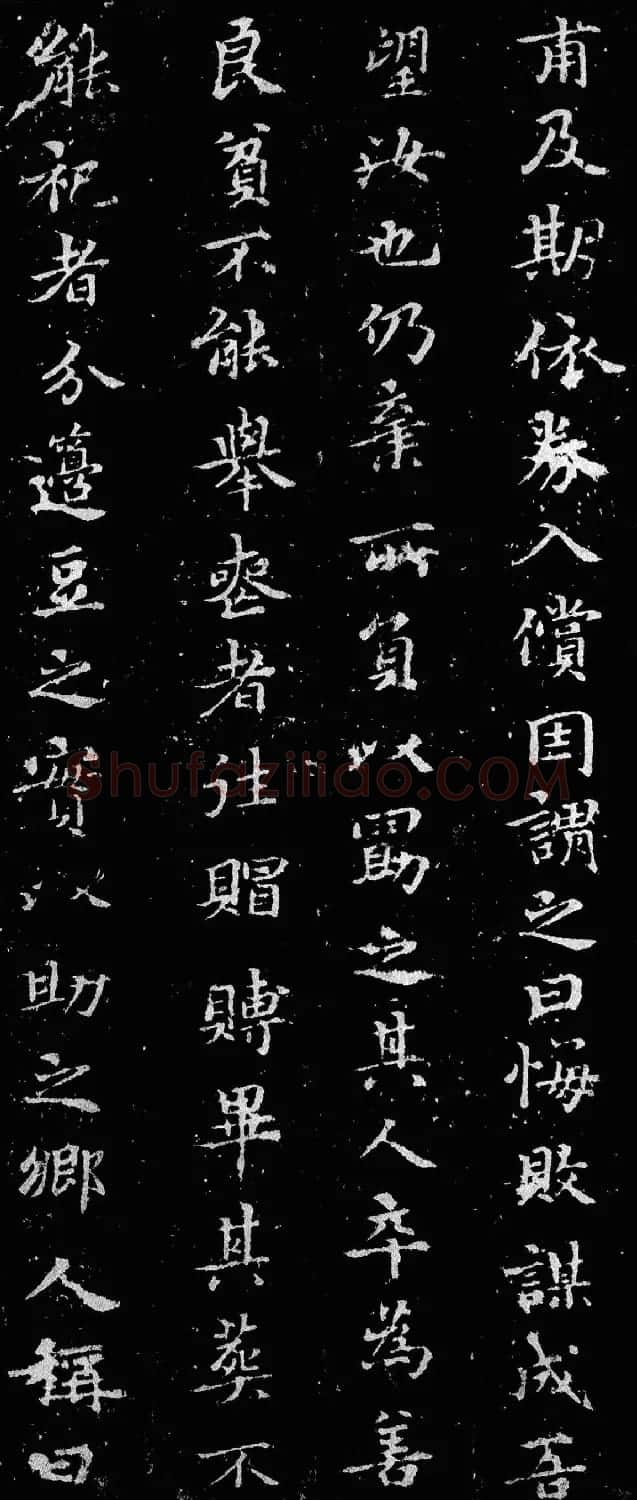 甫及期依券入償因謂之曰悔敗謀成吾
望汝也仍棄所負以勖之其人卒為善
良貧不能舉喪者往賵賻畢其葬不
能祀者分籩豆之實以助之鄉人稱曰
Shufaziliao.COM